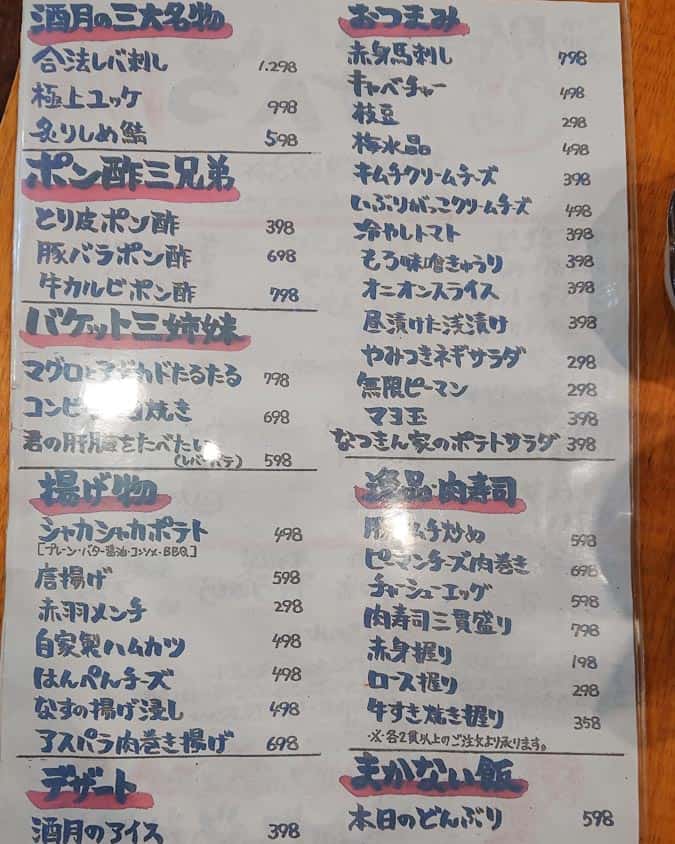 酒月の三大名物
合法レバ刺し 1.298
極上ユッケ 998
炙りしめ鯖 598
ポン酢三兄弟
とり皮ポン酢 398
豚バラポン酢 698
牛カルビポン酢 798
バケット三姉妹
マグロとアボカドたるたる 798
コンビ 焼き 698
君の肝臓をたべたい
(レバーパテ) 598
揚げ物
シャカシャカポテト 498
[プレーン・バター醤油・コンソメ・BBQ]
唐揚げ 598
赤羽メンチ 298
自家製ハムカツ 498
はんぺんチーズ 498
なすの揚げ浸し 498
アスパラ肉巻き揚げ 698
デザート
酒月のアイス 398
おつまみ
赤身馬刺し 798
キャベチャー 498
枝豆 298
梅水晶 498
キムチクリームチーズ 398
いぶりがっこクリームチーズ 498
冷やしトマト 398
もろ味噌きゅうり 398
オニオンスライス 398
昼漬けた浅漬け 398
やみつきネギサラダ 298
無限ピーマン 298
マヨ玉 398
なつきん家のポテトサラダ 398
逸品・肉寿司
豚キムチ炒め 598
ピーマンチーズ肉巻き 698
チャーシューエッグ 598
肉寿司三貫盛り 798
赤身握り 198
ロース握り 298
牛すき焼き握り 358
・※・各2貫以上のご注文より承ります。
まかない飯
本日のどんぶり 598